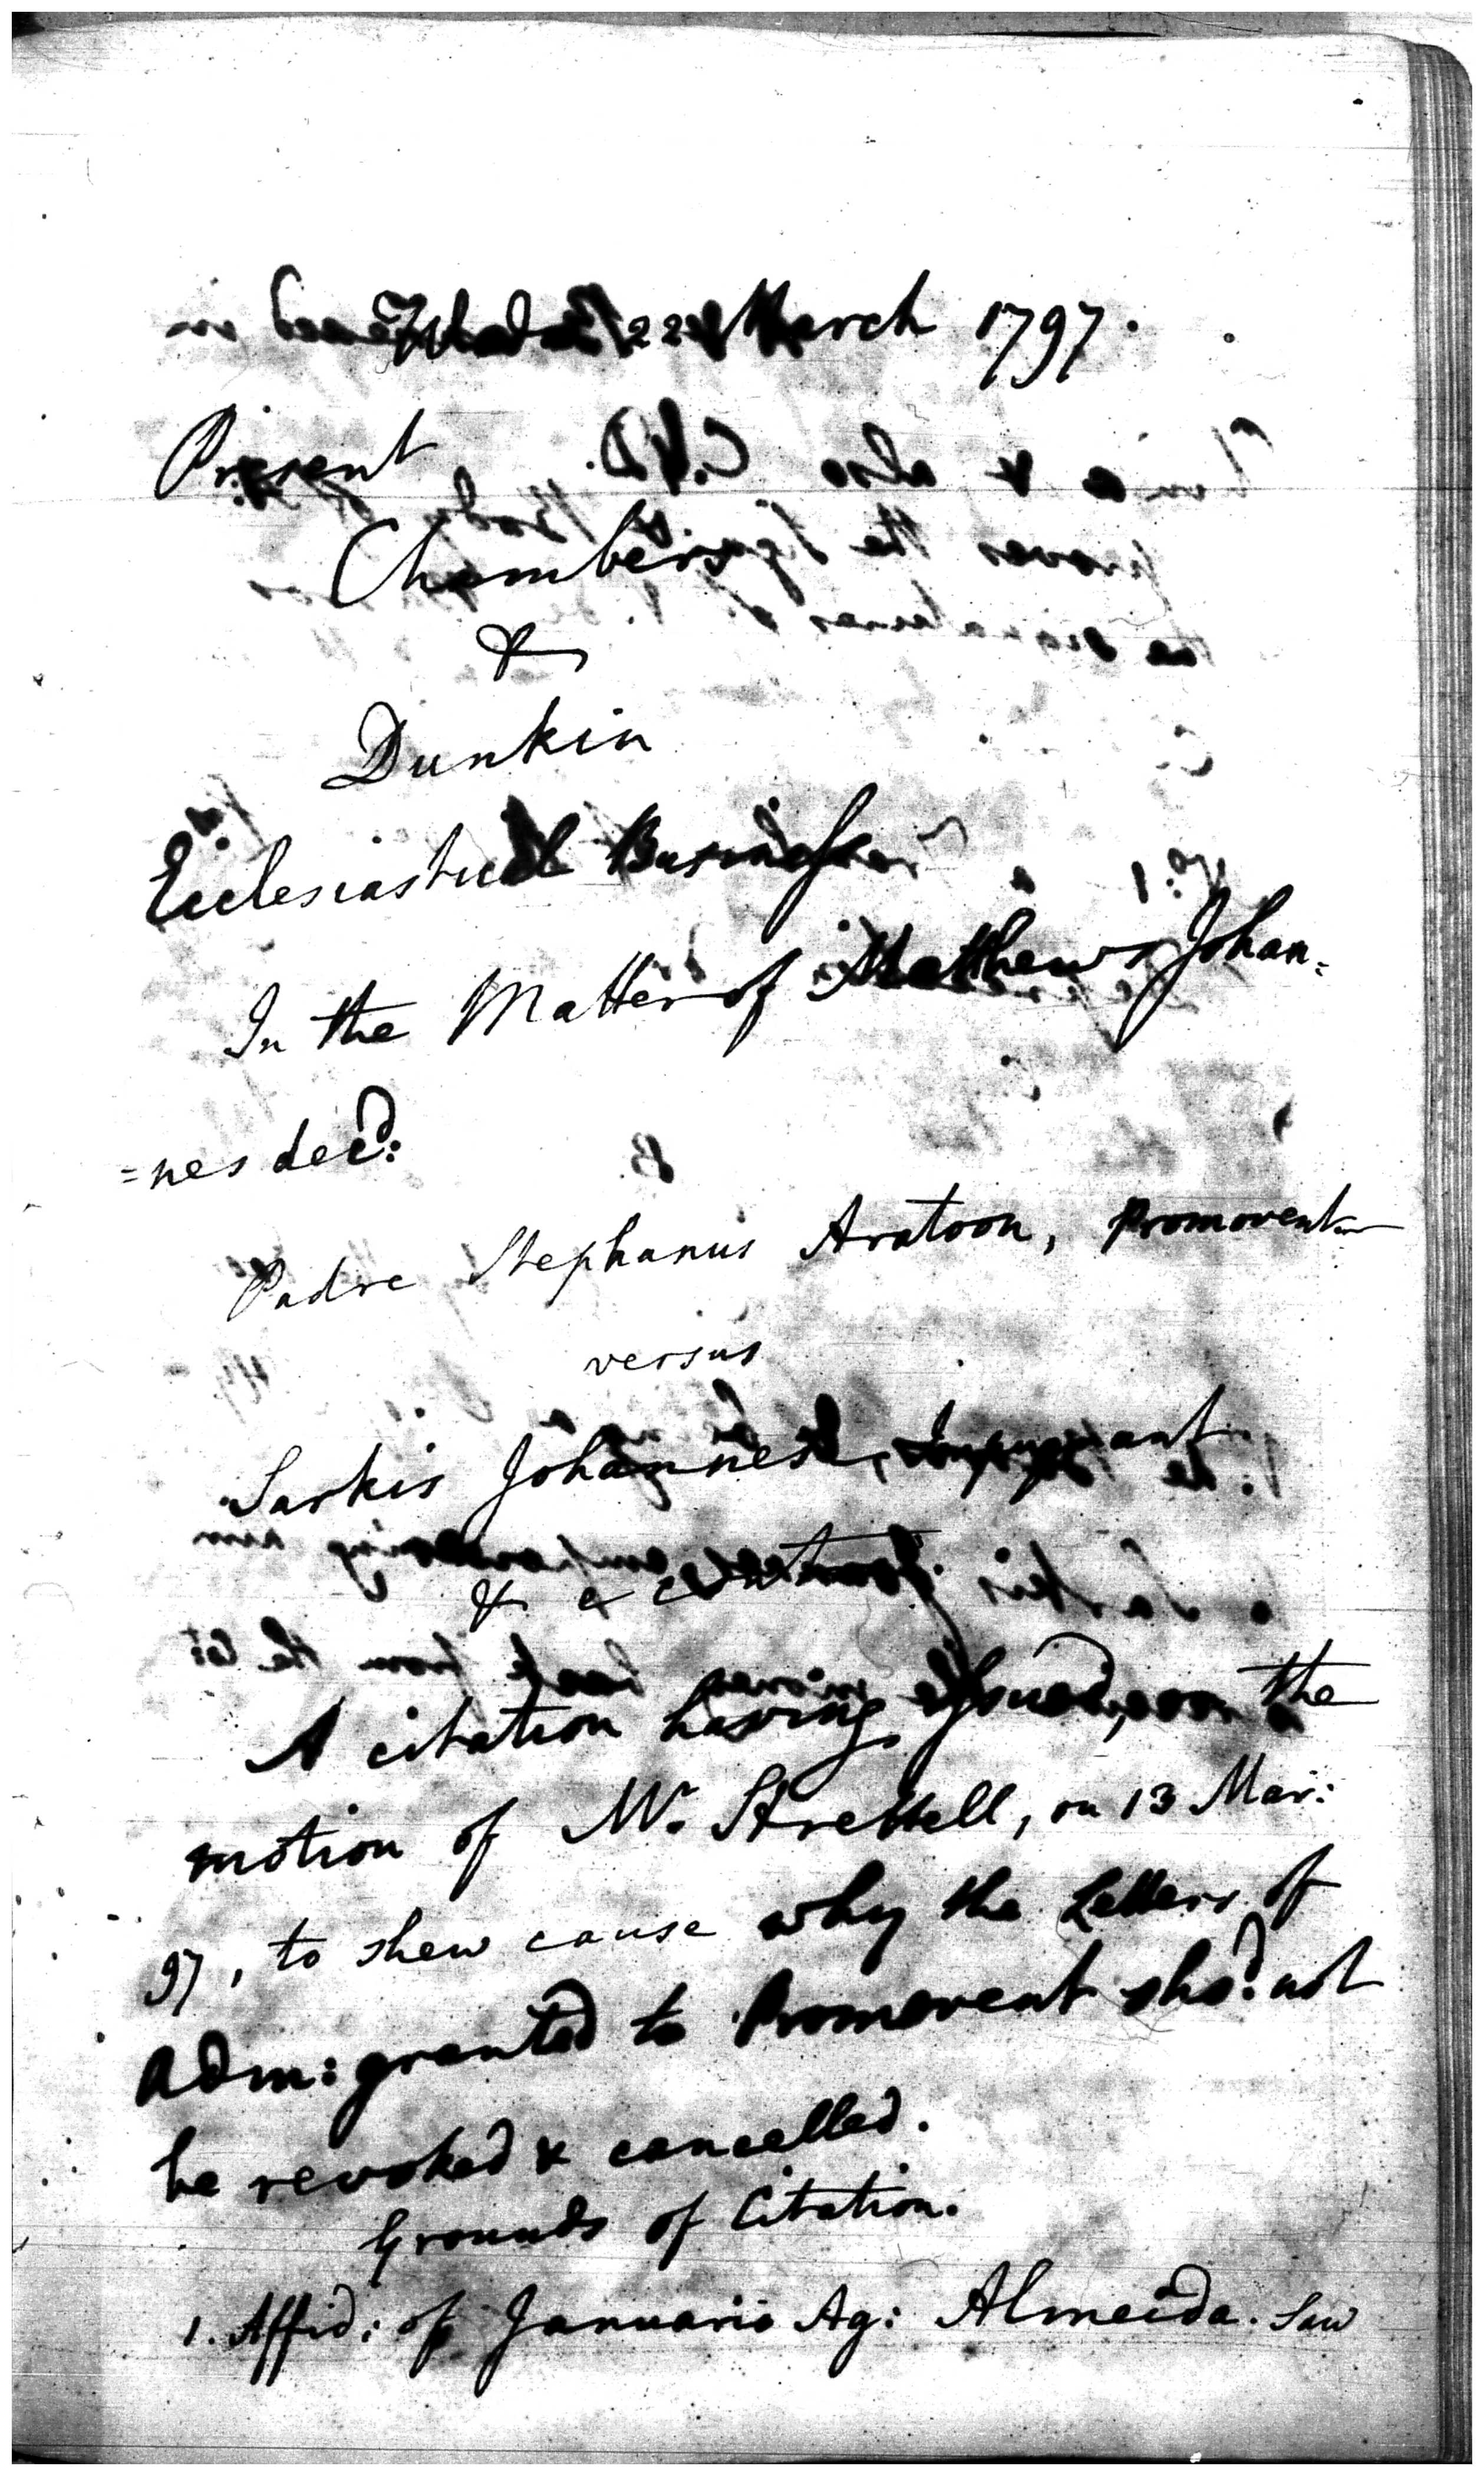 22 March 1797.
Present
Chambers
&
Dunkin
Ecclesiastical Business
In the Matter of Matthews Johan=
=nes decd:
Padre Stephanus Aratoon, Promovent
versus
Sarkis Johannes, Impugnant
& e contra
A citation having issued, on the
motion of Mr. Strettell, on 13 Mar:
97, to shew cause why the Letters of
Adm: granted to Promovent shd: not
be revoked & cancelled.
Grounds of Citation.
1. Affid: of Januario Ag: Almeida. Saw